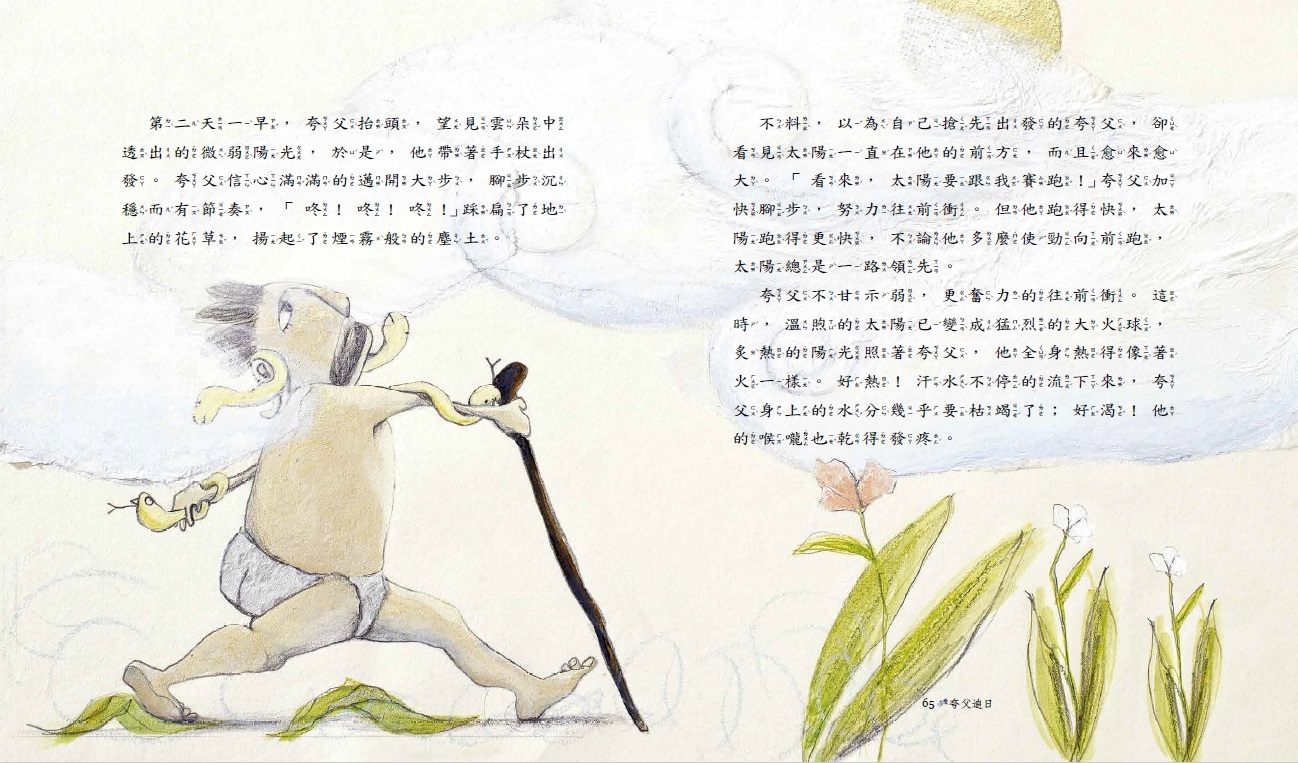 第二天一早，夸父抬頭，望見雲朵中
透出的微弱陽光，於是，他帶著手杖出
發。夸父信心滿滿的邁開大步，腳步沉
穩而有節奏，「咚！咚！咚！」踩扁了地
上的花草，揚起了煙霧般的塵土。
不料，以為自己搶先出發的夸父，卻
看見太陽一直在他的前方，而且愈來愈
大。「看來，太陽要跟我賽跑！」夸父加
快腳步，努力往前衝。但他跑得快，太
陽跑得更快，不論他多麼使勁向前跑，
太陽總是一路領先。
夸父不甘示弱，更奮力的往前衝。這
時，溫煦的太陽已變成猛烈的大火球，
炙熱的陽光照著夸父，他全身熱得像著
火一樣。好熱！汗水不停的流下來，夸
父身上的水分幾乎要枯竭了；好渴！他
的喉嚨也乾得發疼。
65 夸父追日